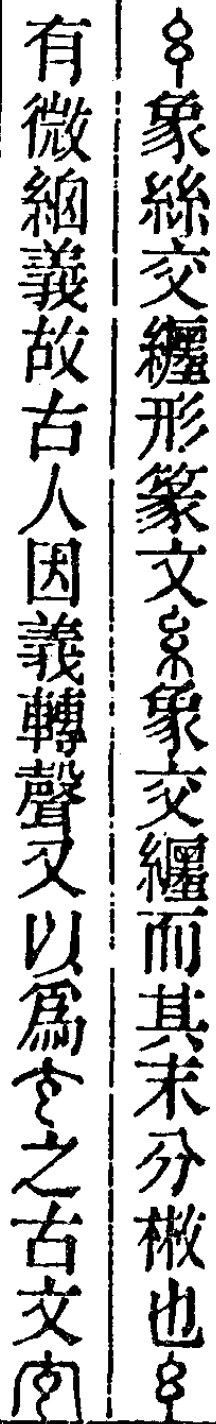 象絲交纏形篆文糸象交纏而其末分㪔也
有微細義故古人因義轉聲又以爲玄之古文